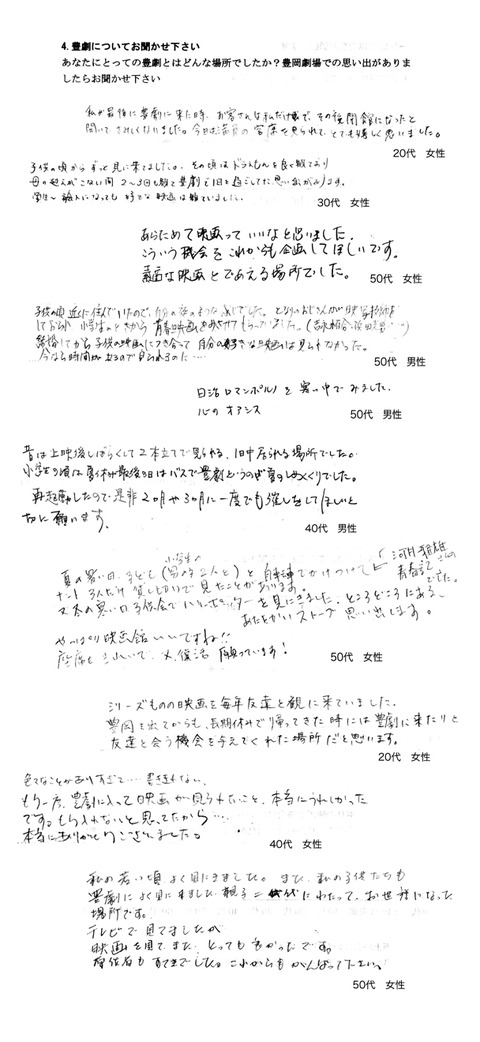 4. 豊劇についてお聞かせ下さい
あなたにとっての豊劇とはどんな場所でしたか？豊岡劇場での思い出がありま
したらお聞かせ下さい
私が最後に豊劇に来た時、お客さんは私だけで、その後閉館になったと
聞いてさみしくなりました。今日は満員の客席を見られてとても嬉しく思いました。
20代 女性
子供の頃からずっと見に来てました。その頃はドラえもんを良く観ており
母の迎えがこない間 2～3回も観て豊劇で1日を過ごしてた思い出があります。
学生～婦人になっても 好きな映画は観ていました。
30代 女性
あらためて映画っていいなと思いました。
こういう機会をこれからも企画してほしいです。
素適な映画とであえる場所でした。
50代 女性
子供の頃近に住んでいたので、自分の家のような感じでした。となりのおじさんが映写技師を
しており 小学生のときから 青春映画を
結婚してから子供の映画につき合って 自分の好きな映画は見られなかった。
今なら時間があるので見られるのに…
50代 男性
日活ロマンポルノを暑い中でみました。
心のオアシス
50代 男性
昔は上映後しばらくして2本立てで見られる、1日中居られる場所でした。
小学生の頃は夏休み最後の日はバスで豊劇というのが夏のしめくくりでした。
再起動したので是非2ヶ月や3ヶ月に一度でも催しをしてほしいと
切に願います。
40代 男性
小学生の
夏の暑い日、子ども(男の子2人と)と自転車でかけつけて
ナント3人だけ 貸し切りで見たことがあります。
河井継雄
青春記
でした。
又冬の寒い日 子供会でハリーポッターを見にきました。ところどころにある
あたたかいストーブ 思い出します。
やっぱり映画館いいですね!!
座席もきれいで、又、復活 願っています!
50代 女性
シリーズものの映画を毎年友達と観に来ていました。
豊岡を出てからも、長期休みで帰ってきた時には豊劇に来たりと
友達と会う機会を与えてくれた場所だと思います。
20代 女性
色々なことがありすぎて…書ききれない。
もう一度、豊劇に入って映画が見られたこと、本当にうれしかった
です。もう入れないと思ってたから…
本当にありがとうございました。
40代 女性
私の若い頃よく見にきました。また、私の子供たちも
豊劇によく見に来ました。親子二代にわたって、お世話になった
場所です。
テレビで見てましたが
映画を見て、また、とっても良かったです。
もすてきでした。これからもがんばって下さい。
50代 女性